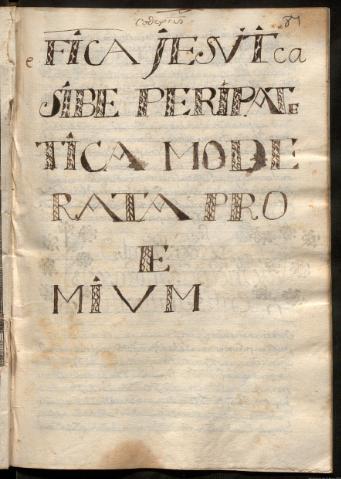 87
e FICA JESVIT ca
SIBE PERIPAT
TICA MODE
RATA PRO
E
MIVM